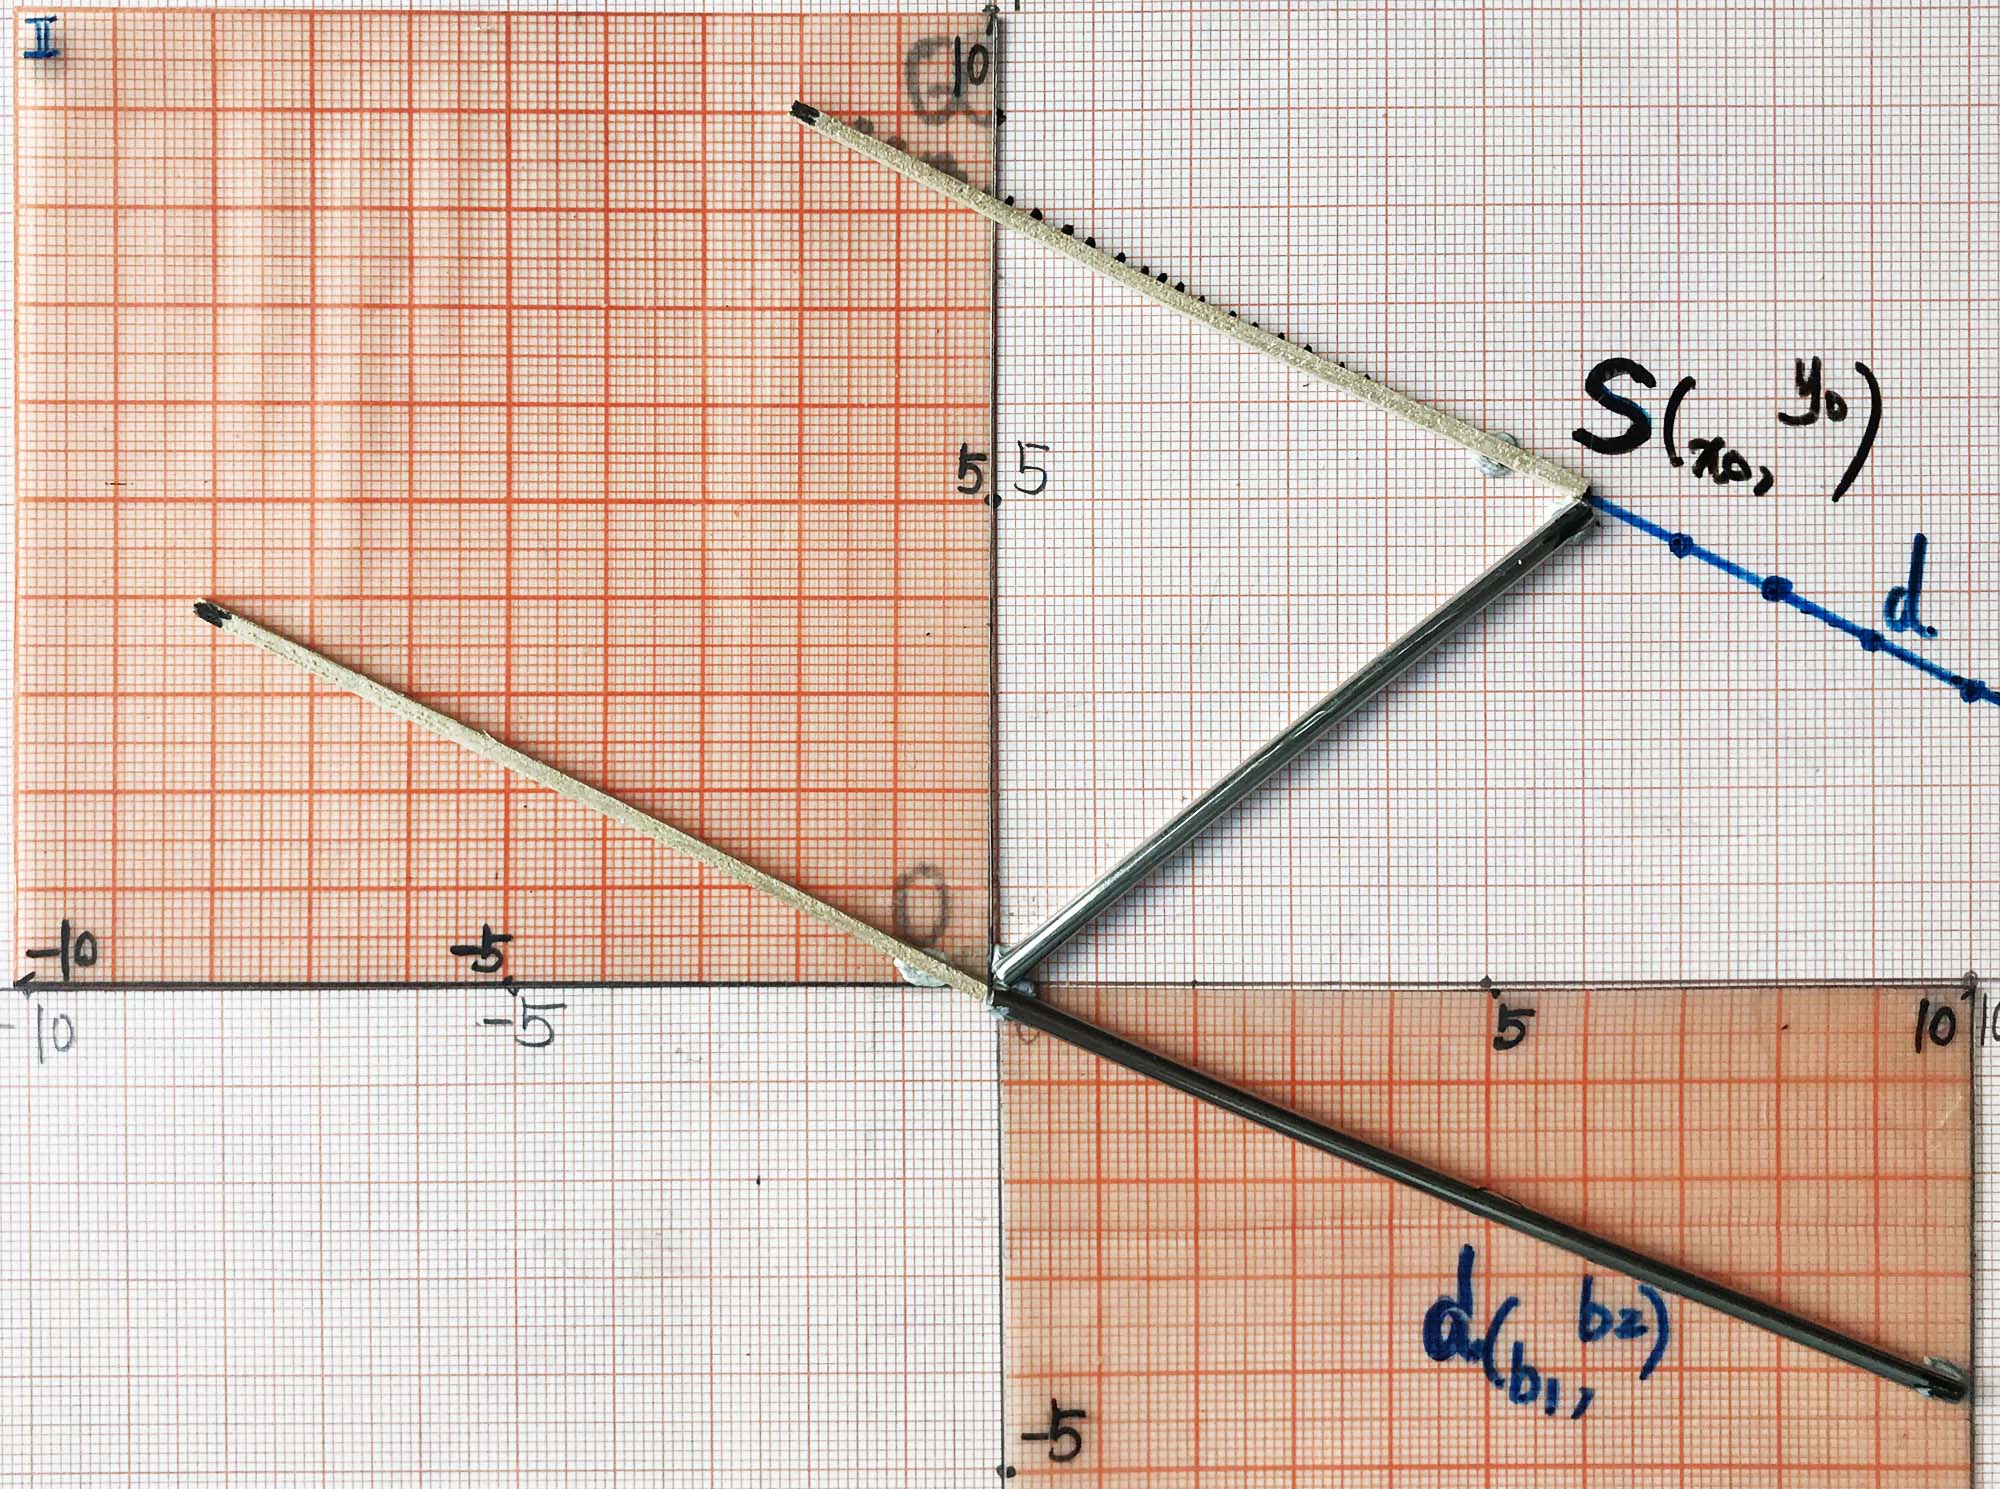 II
10
Q
5 5
S(x₀, y₀)
d.
O
-10
-5
-10
-5
5
10
10
d.(b₁, b₂)
-5